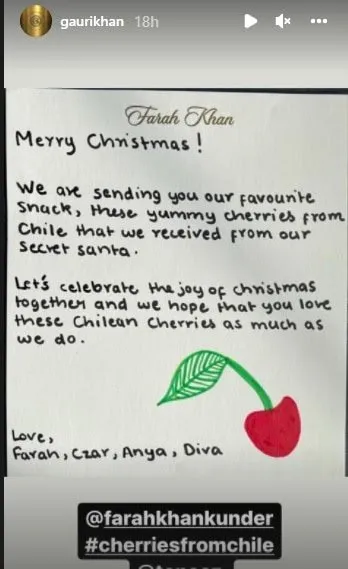 gaurikhan 18h
Farah Khan
Merry Christmas!
We are sending you our favourite
snack, these yummy cherries from
Chile that we received from our
secret santa.
Let's celebrate the joy of christmas
together and we hope that you love
these Chilean Cherries as much as
we do.
Love,
Farah, Czar, Anya, Diva
@farahkhankunder
#cherriesfromchile